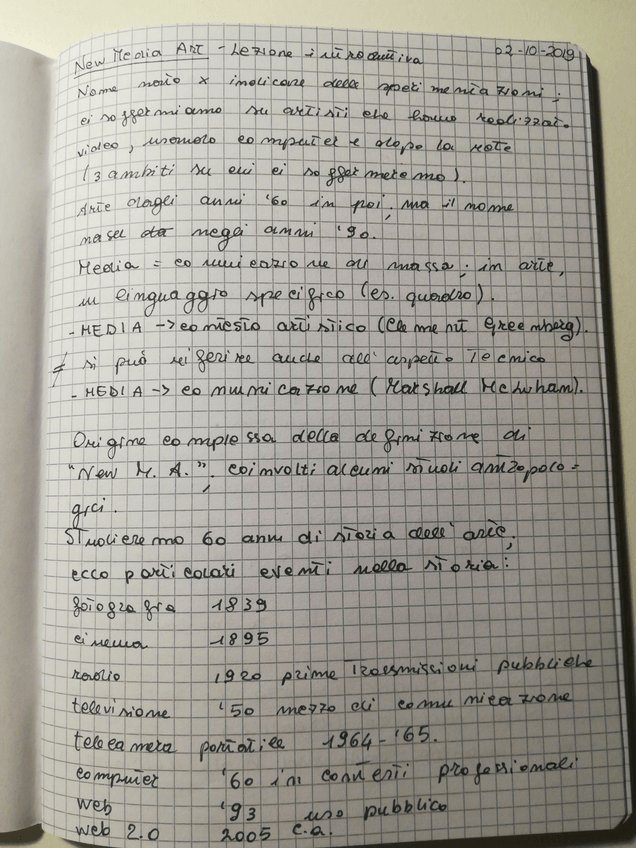 New Media Art - Lezione introduttiva 02-10-2019
Nome nato x indicare delle sperimentazioni;
ci soffermiamo su artisti che hanno realizzato
video, usando computer e dopo la rete
(3 ambiti su cui ci soffermeremo).
Arte dagli anni '60 in poi, ma il nome
nasce negli anni '90.
Media = comunicazione di massa; in arte,
un linguaggio specifico (es. quadro).
- MEDIA -> contesto artistico (Clement Greenberg).
≠ si può riferire anche all'aspetto tecnico
- MEDIA -> comunicazione (Marshall McLuham).
Origine complessa della definizione di
"New M. A.", coinvolti alcuni studi antropolo=
gici.
Studieremo 60 anni di storia dell'arte;
ecco particolari eventi nella storia:
fotografia 1839
cinema 1895
radio 1920 prime trasmissioni pubbliche
televisione '50 mezzo di comunicazione
telecamera portatile 1964-'65.
computer '60 in contesti professionali
web '93 uso pubblico
web 2.0 2005 c.a.